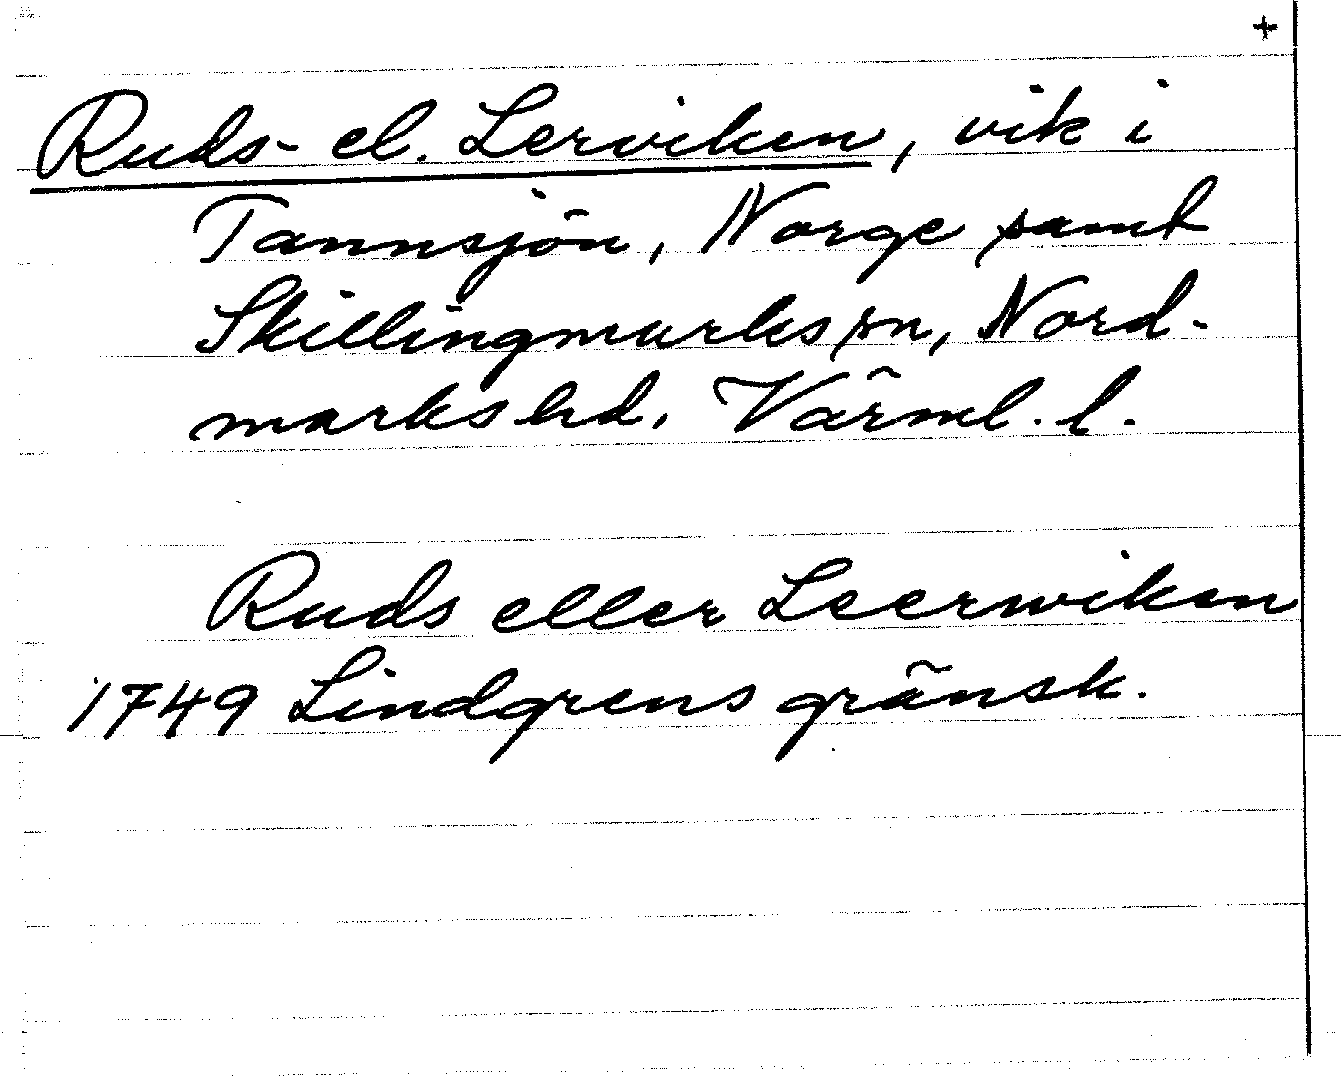 +
Ruds- el. Lerviken, vik i
Tannsjön, Norge samt
Skillingmarks sn, Nord-
marks hd. Värml. l.
Ruds eller Leerwiken
1749 Lindgrens gränsk.